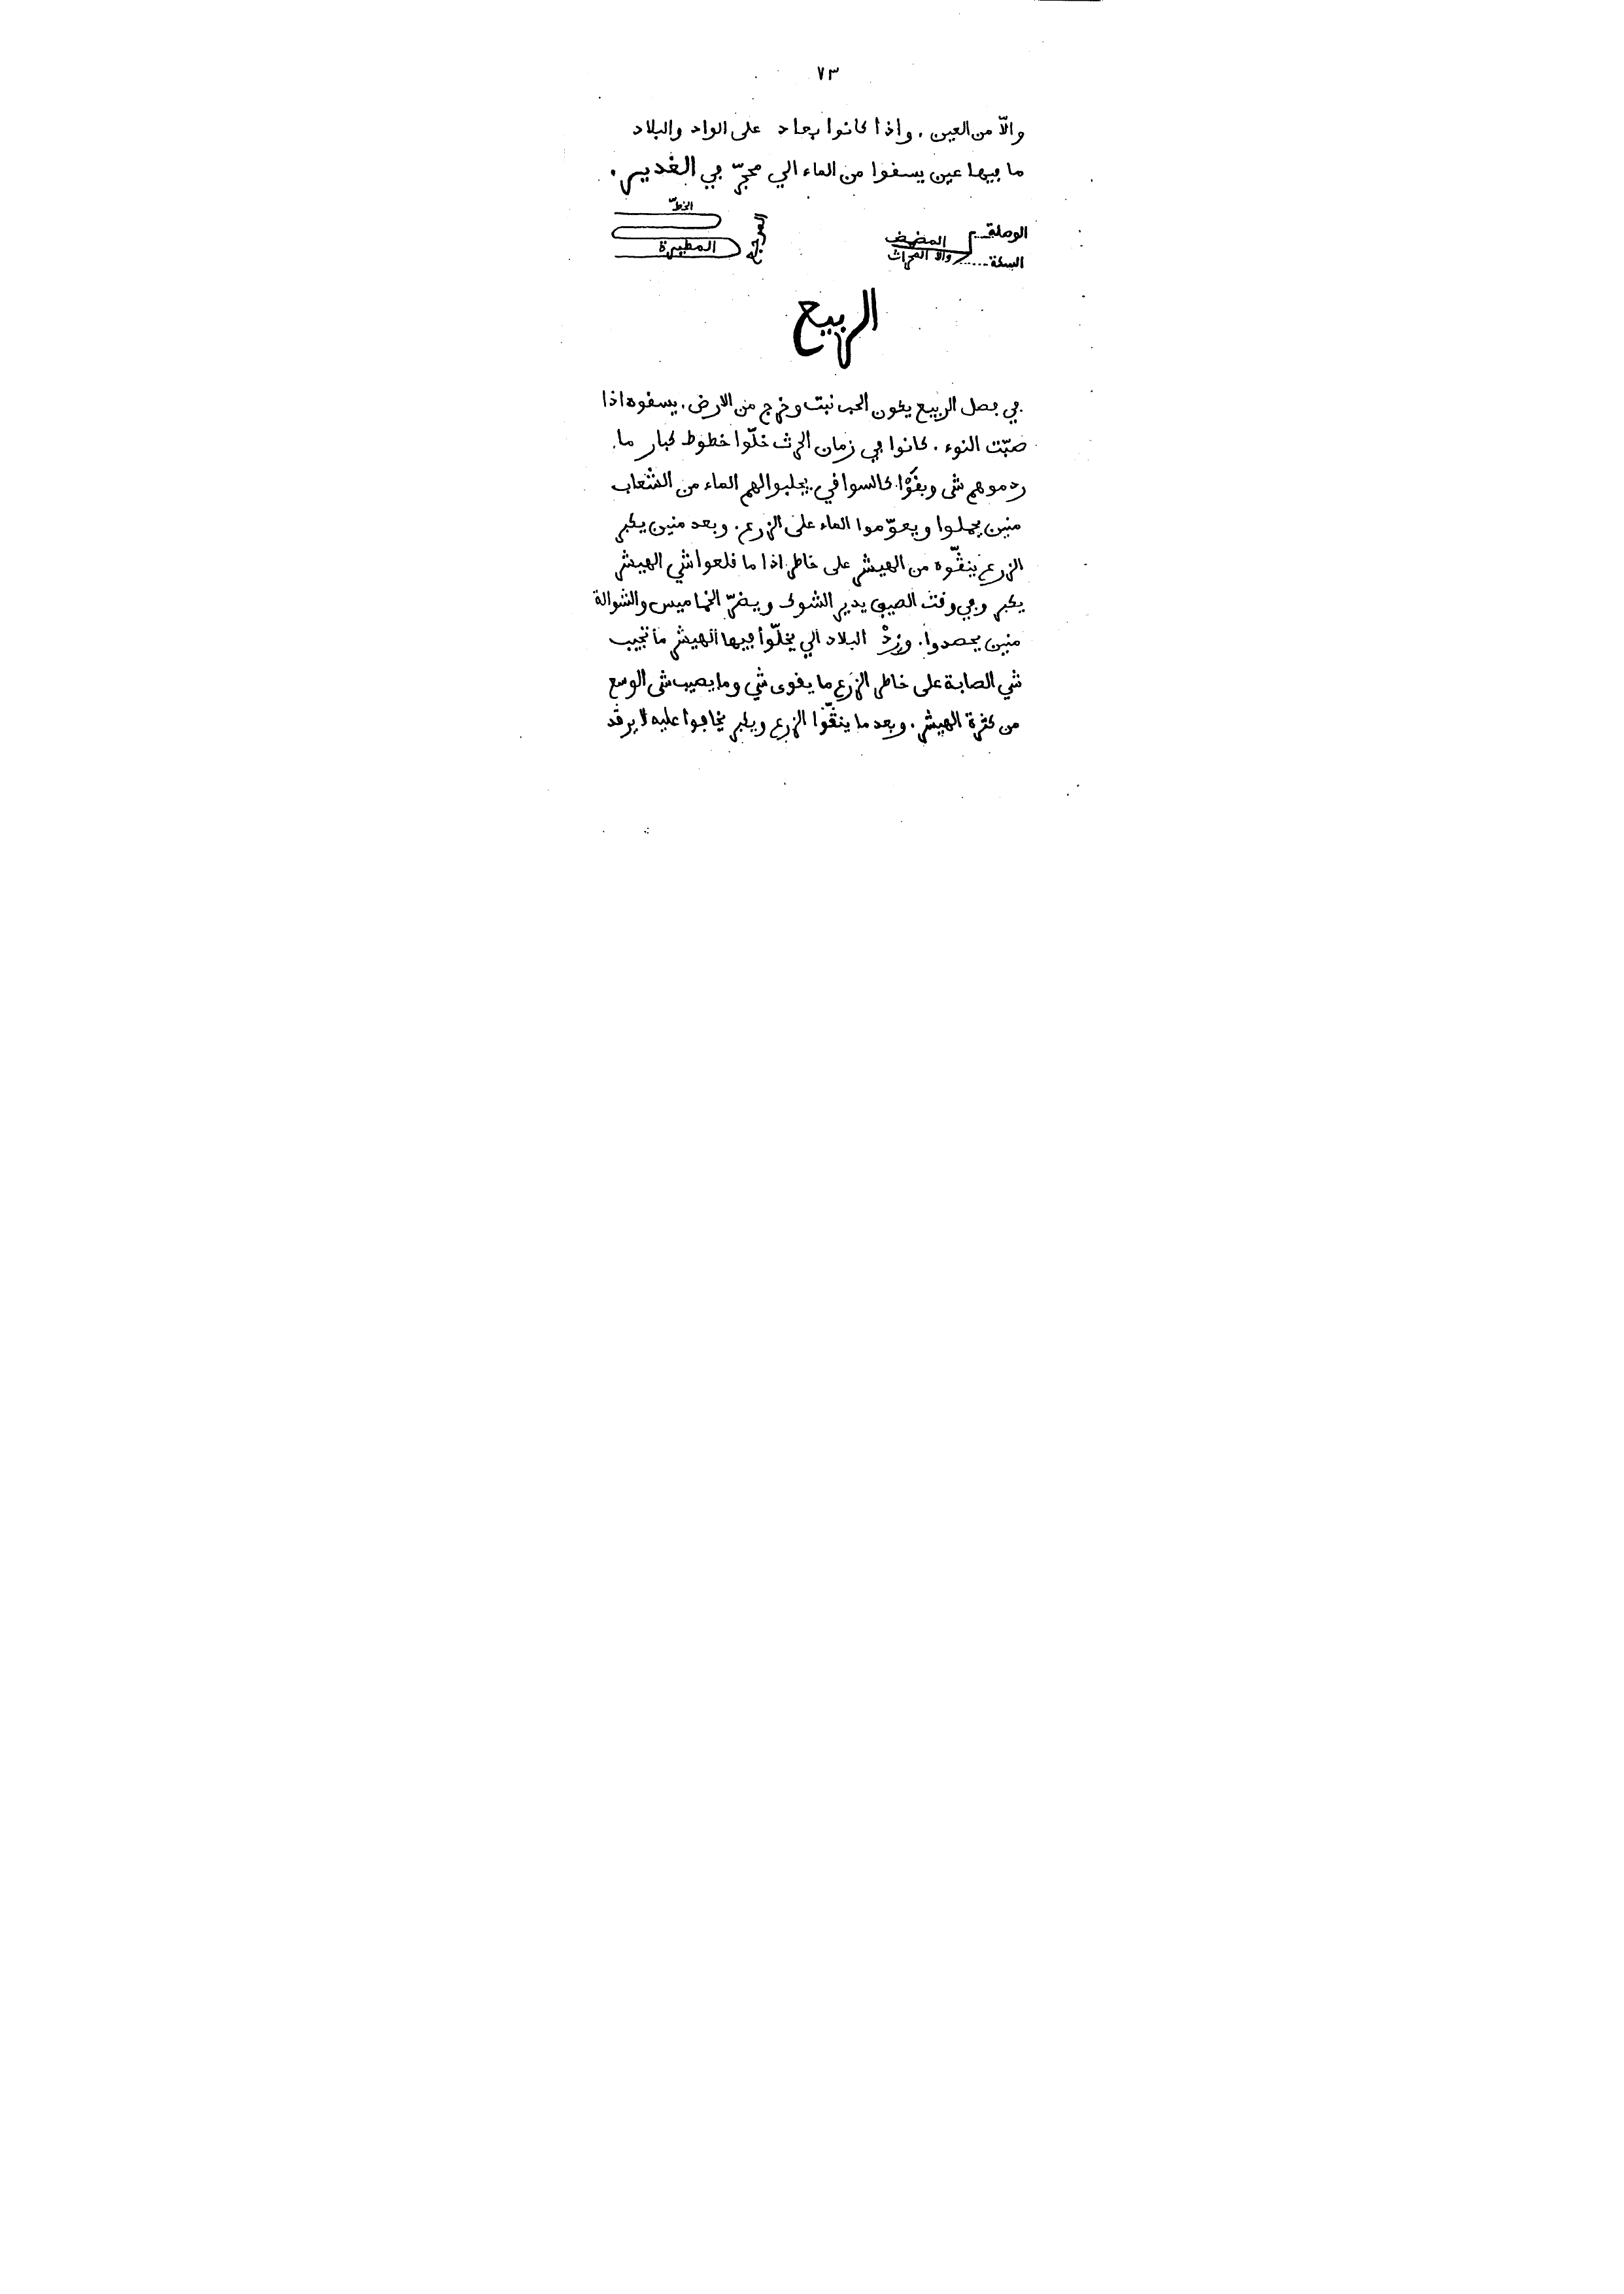 ٧٣
والّا من العين. واذا كانوا بعاد على الواد والبلاد
ما فيها عين يسقوا من الماء الي محجّر في الغدير.
الخطّ
المرجع
المطيرة
الوصلة
المضمض
والا المحراث
السكة
الربيع
في فصل الربيع يكون الحب نبت وخرج من الارض. يسقوه اذا
صبّت النوء. كانوا في زمان الحرث خلّوا خطوط كبار ما
ردموهم شي وبقَوْا كالسواقي. يجلبوا لهم الماء من الشعاب
منين يحملوا ويعوّموا الماء على الزرع. وبعد منين يكبر
الزرع ينقّوه من الهيشر على خاطر اذا ما قلعوا شي الهيشر
يكبر وفي وقت الصيف يدير الشوك ويضرّ الخماميس والشوالة
منين يحصدوا. وزِدْ البلاد الي يخلّوا فيها الهيشر ما تجيب
شي الصابة على خاطر الزرع ما يقوى شي وما يصيب شي الوسع
من كثرة الهيشر. وبعد ما ينقّوا الزرع ويكبر يخافوا عليه لا يرقد